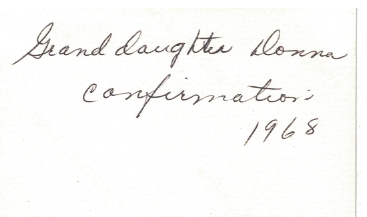 Grand daughter Donna
Confirmation
1968